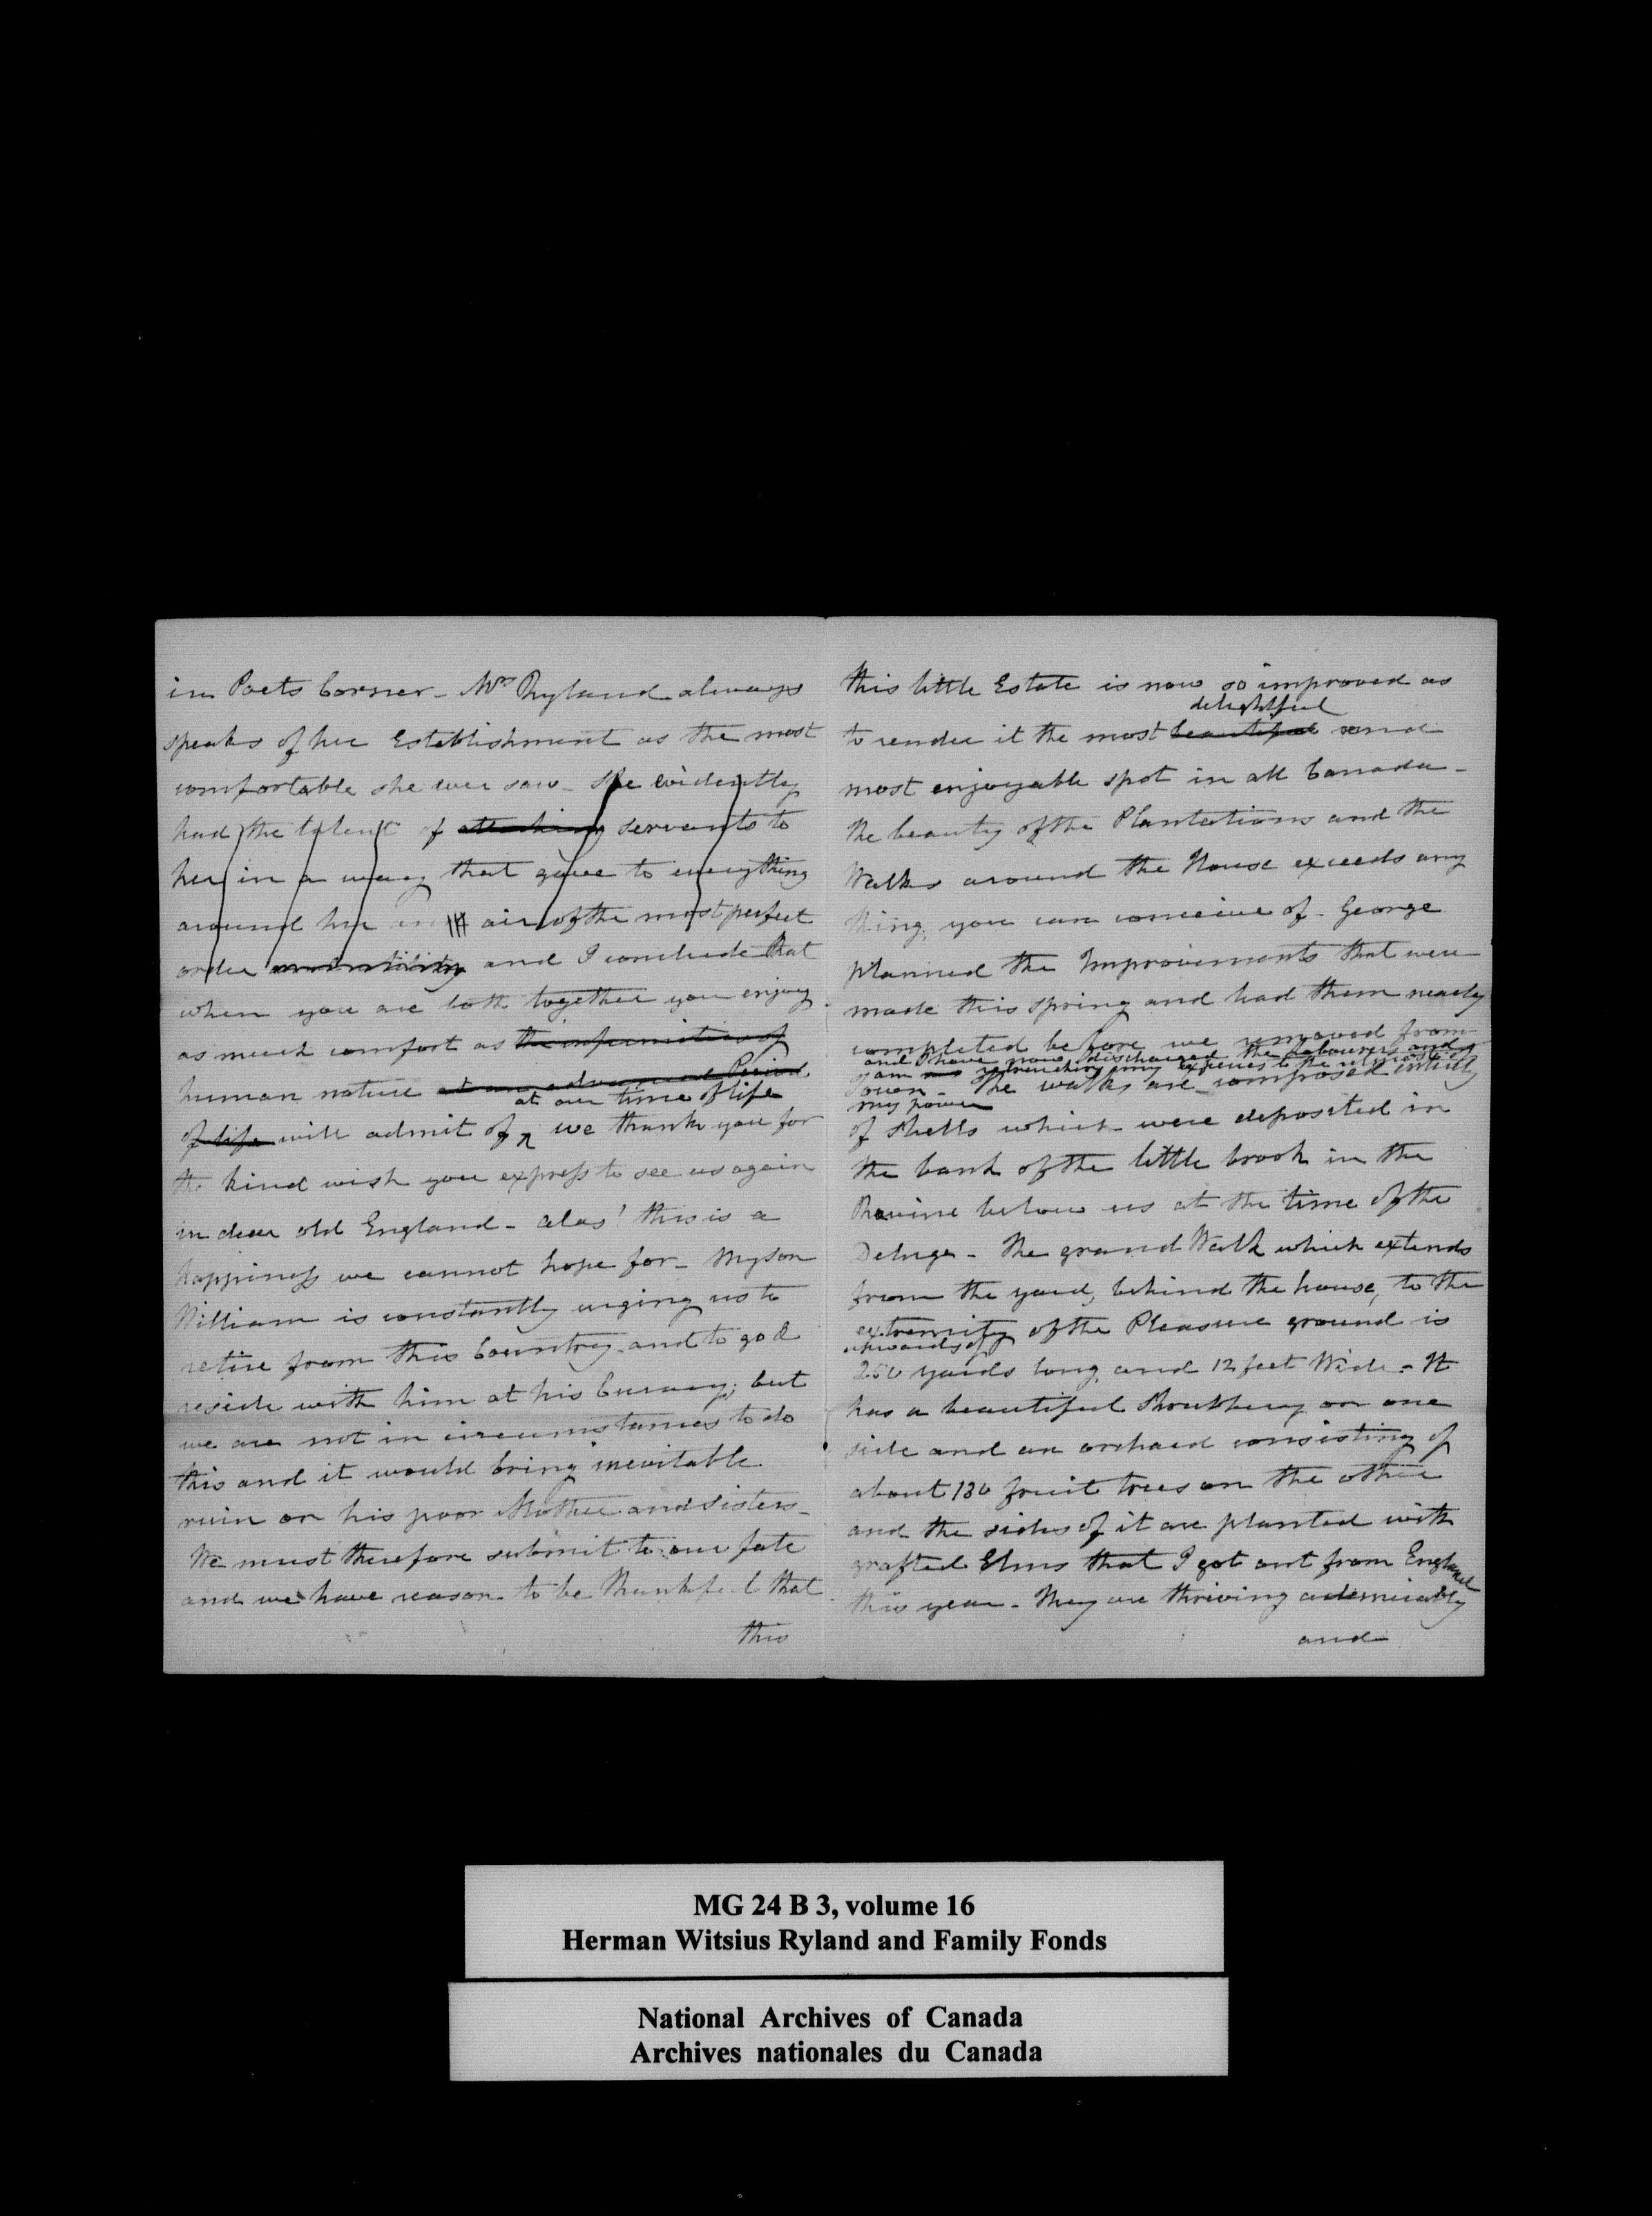 in Poets Corner - Mrs Ryland always
speaks of her Establishment as the most
comfortable she ever saw - she evidently
had the talent of attaching servants to
her in a way that gave to everything
around her an air of the most perfect
order and I conclude that
when you are both together you enjoy
as much comfort as the infirmities of
human nature at an advanced Period
at our time of life
of life will admit of we thank you for
the kind wish you express to see us again
in dear old England - alas! this is a
happiness we cannot hope for - My son
William is constantly urging us to
retire from this Country and to go &
reside with him at his Curacy; but
we are not in circumstances to do
this and it would bring inevitable
ruin on his poor Mother and Sisters -
We must therefore submit to our fate
and we have reason to be thankful that
this
this little Estate is now so improved as
delightful
to render it the most beautiful and
most enjoyable spot in all Canada -
the beauty of the Plantations and the
Walks around the House exceeds any
thing you can conceive of - George
planned the Improvements that were
made this spring and had them nearly
completed before we removed from
and I have now discharged the labourers and
I am retrenching my expenses to the utmost of
The walks are composed entirely
my power
of shells which were deposited in
the bank of the little brook in the
Ravine below us at the time of the
Deluge - the grand Walk which extends
from the yard, behind the house, to the
extremity of the Pleasure ground is
upwards of
250 yards long and 12 feet Wide - It
has a beautiful Shrubbery on one
side and an orchard consisting of
about 130 fruit trees on the other
and the sides of it are planted with
grafted Elms that I got out from England
this year - they are thriving admirably
and
MG 24 B 3, volume 16
Herman Witsius Ryland and Family Fonds
National Archives of Canada
Archives nationales du Canada